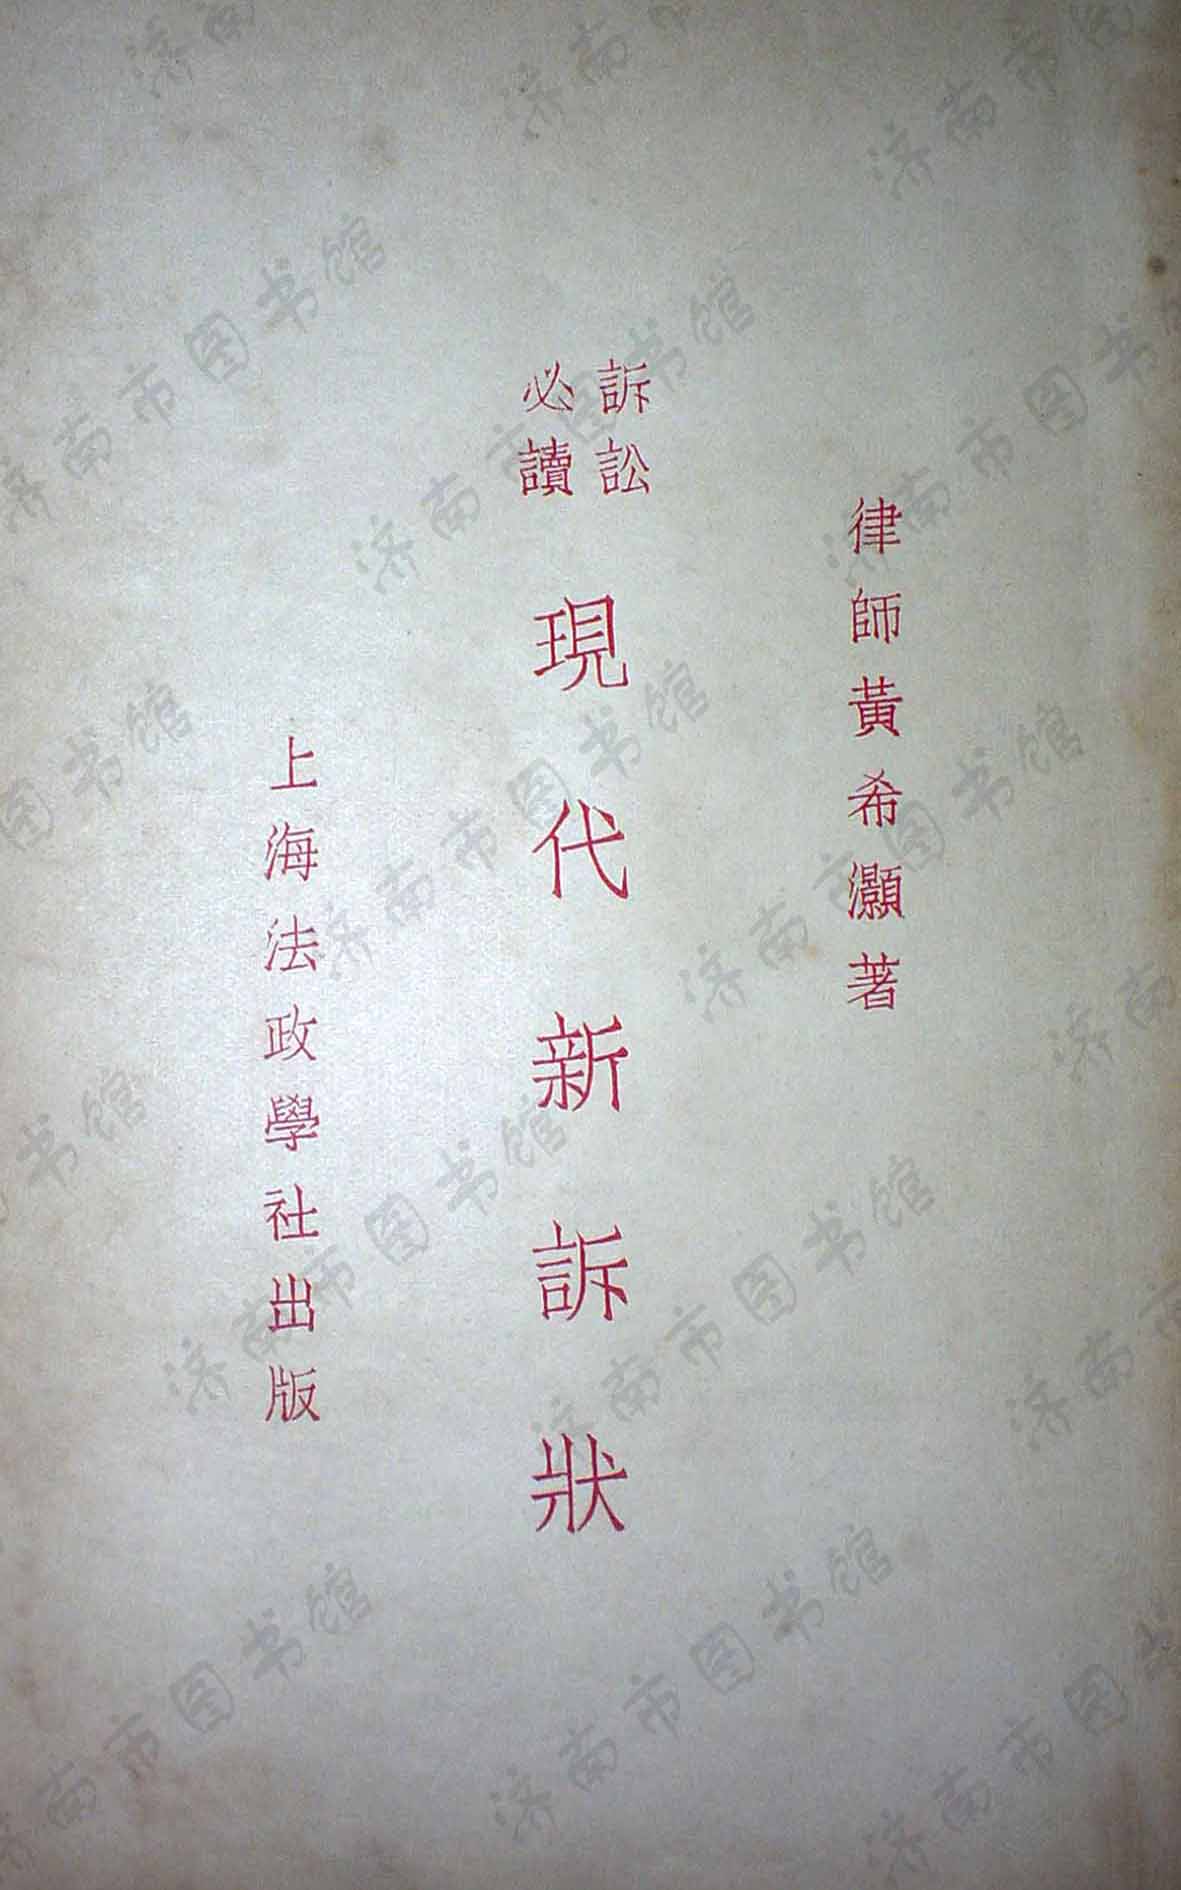 律師黃希灝著
訴訟
必讀
現代新訴狀
上海法政學社出版
济南市图书馆